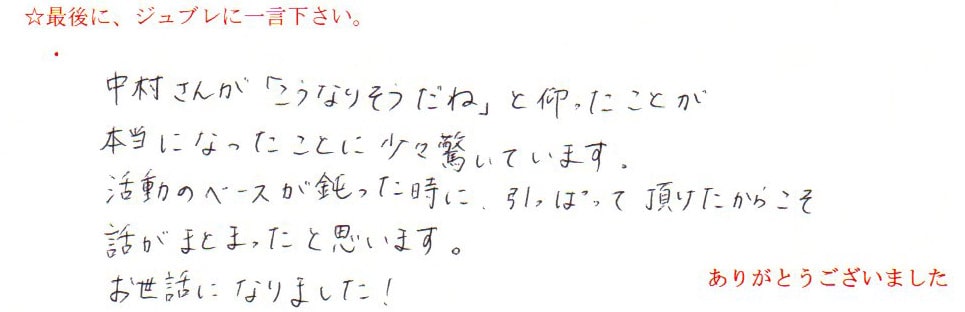 ☆最後に、ジュブレに一言下さい。
・
中村さんが「こうなりそうだね」と仰ったことが
本当になったことに少々驚いています。
活動のペースが鈍った時に、引っぱって頂けたからこそ
話がまとまったと思います。
お世話になりました!
ありがとうございました